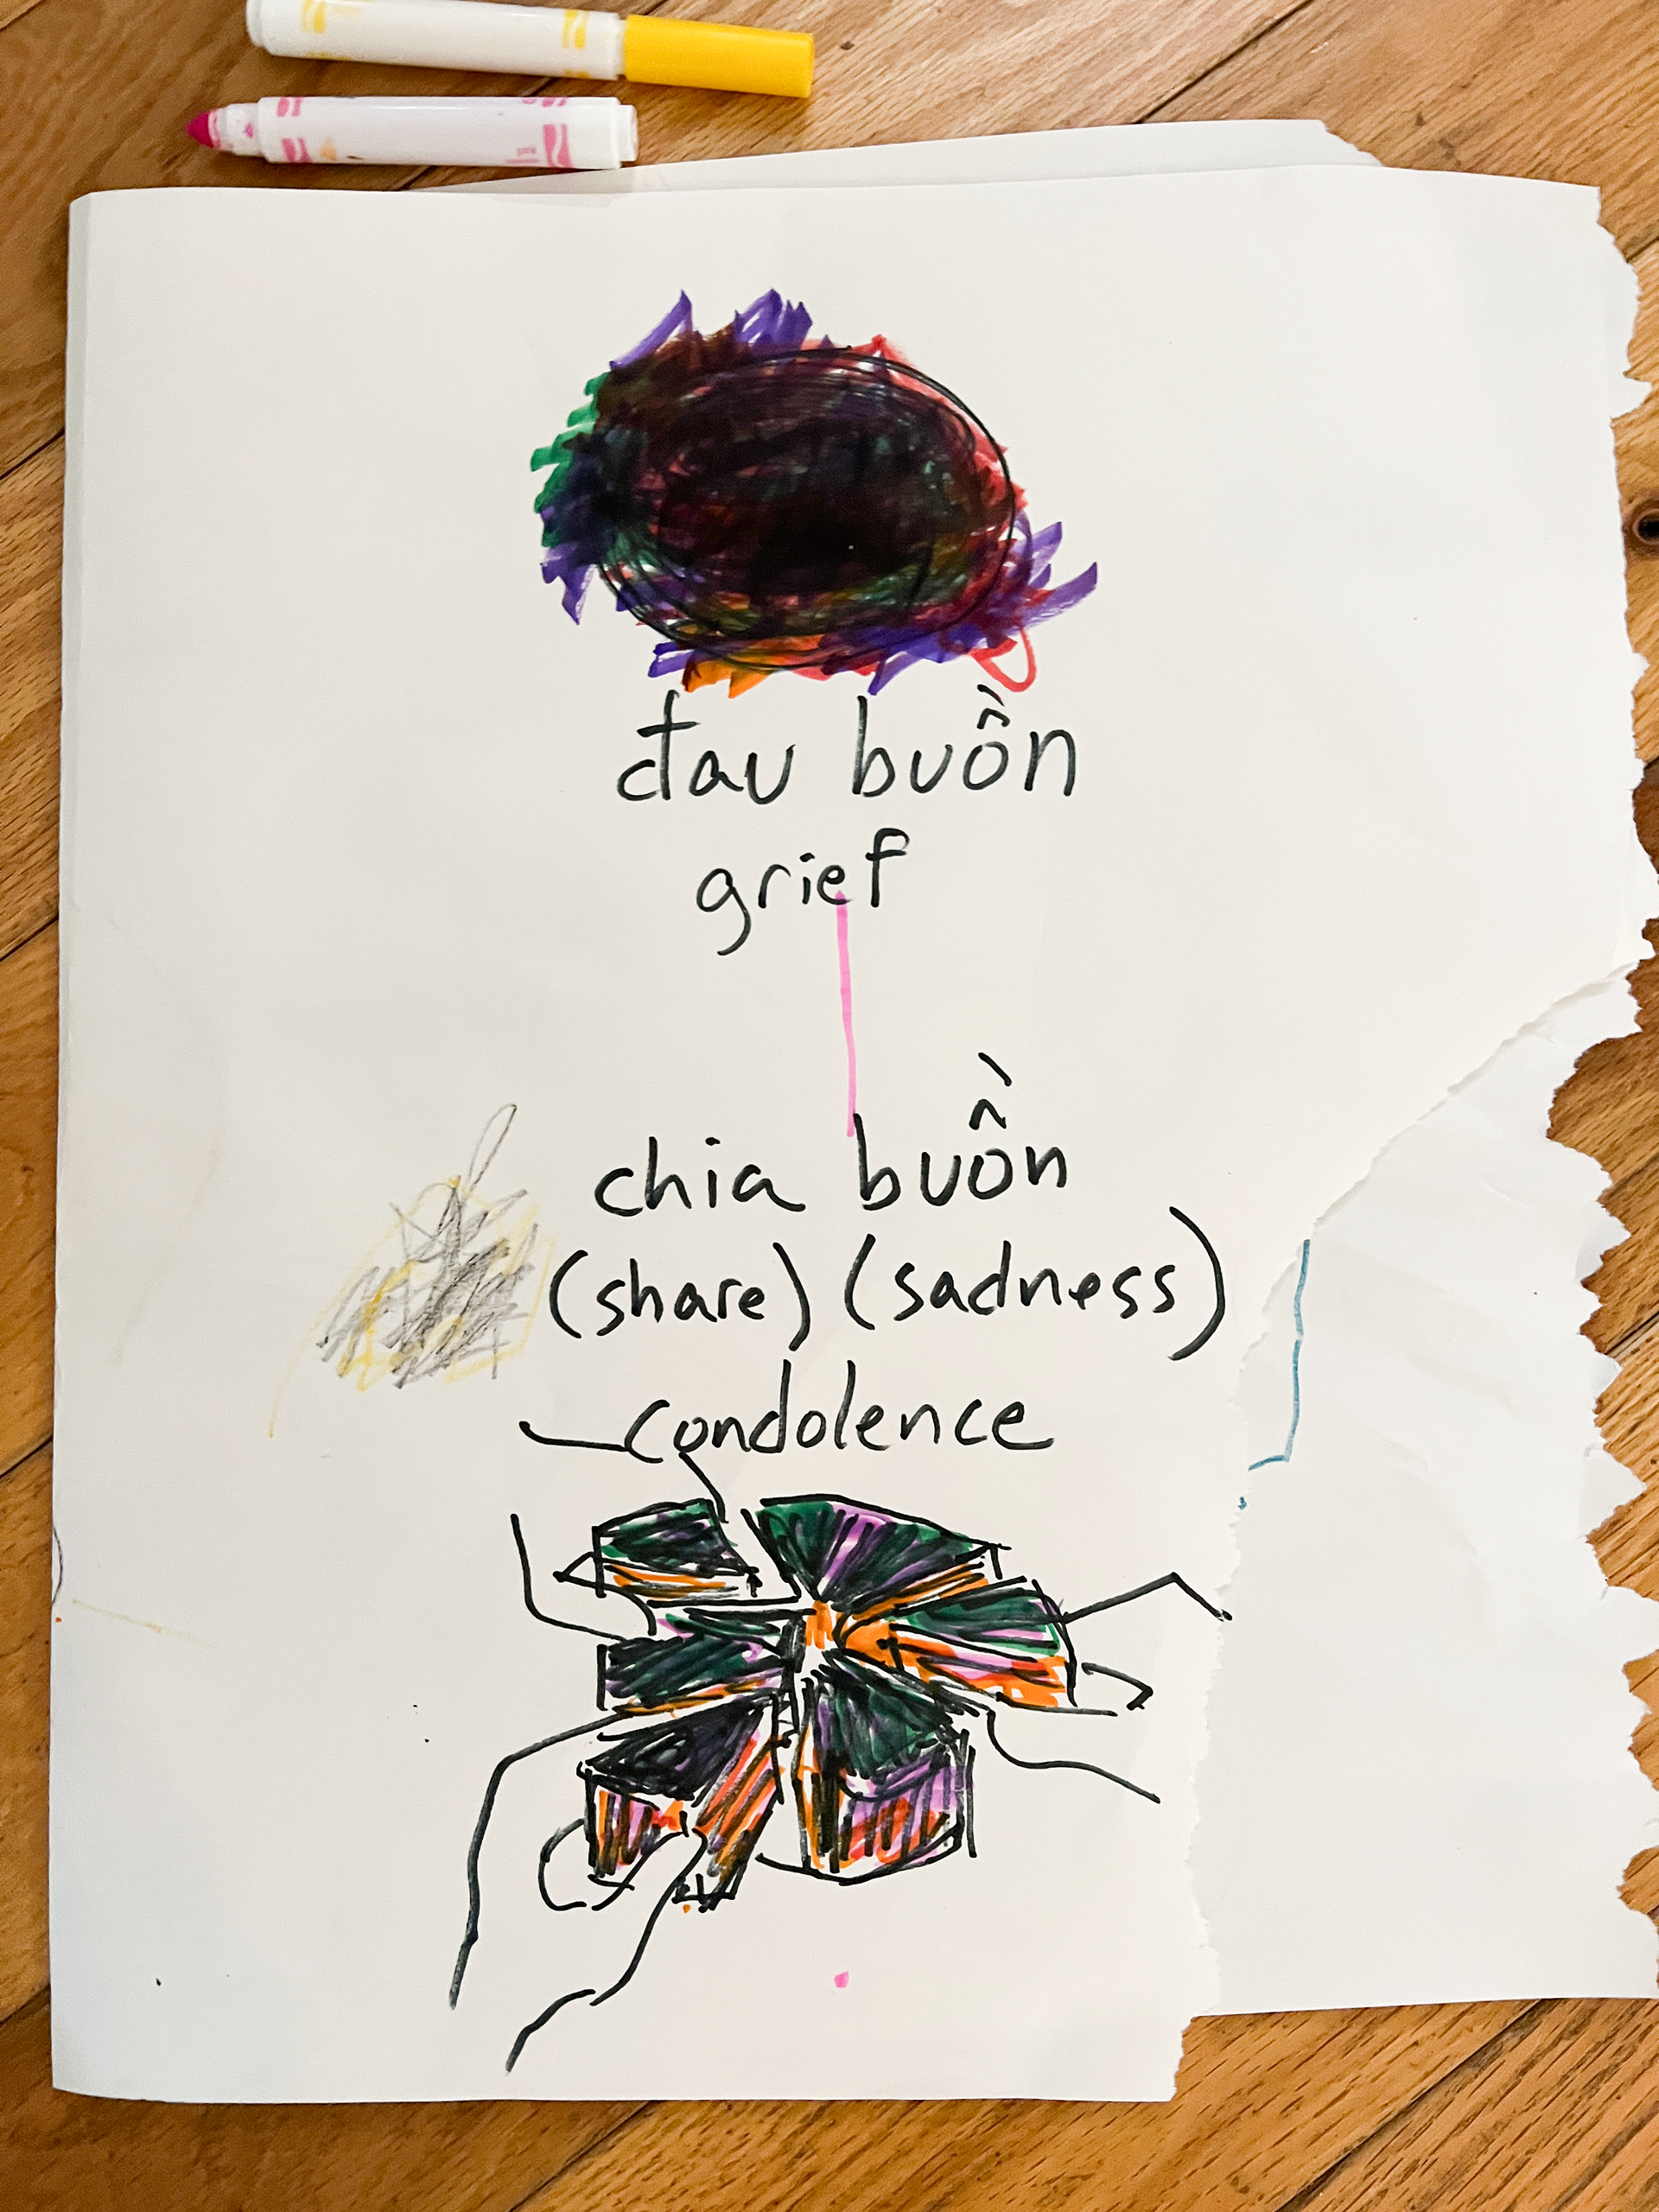 đau buồn
grief
chia buồn
(share) (sadness)
condolence